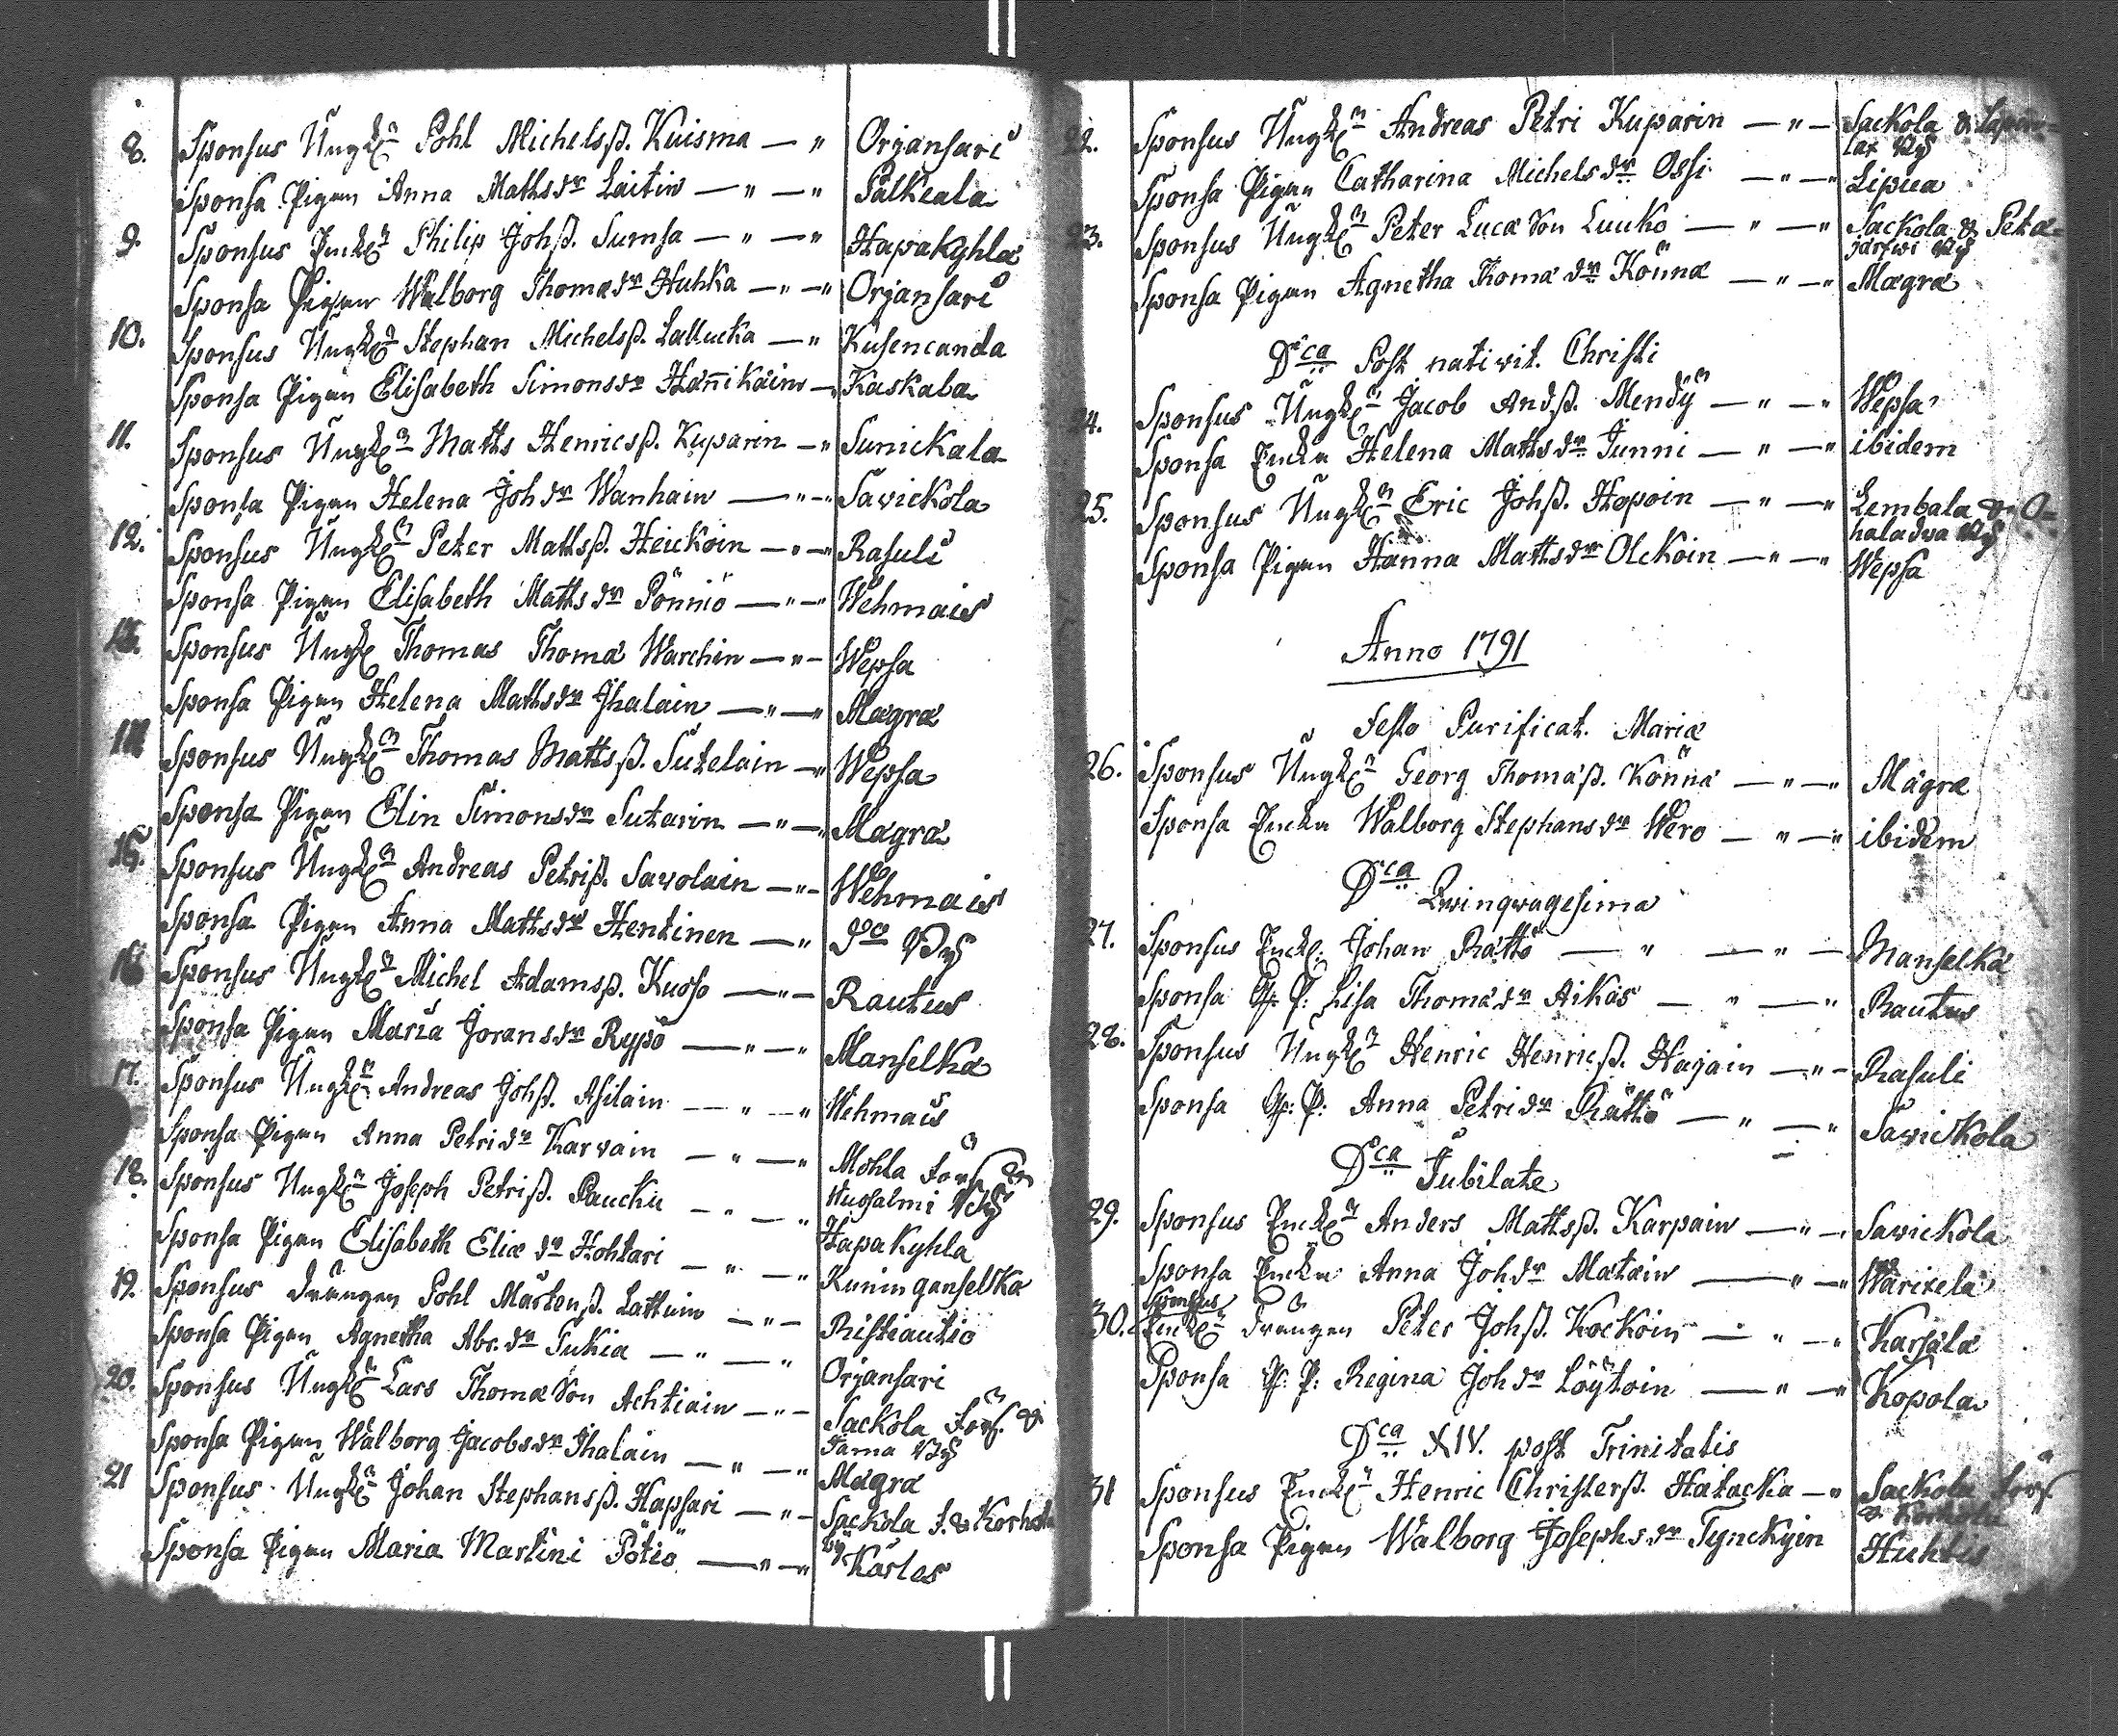 8. Sponsus Ungk. Pohl Michelsß. Kuisma — " Orjansari
Sponsa Pigan Anna Mathsdr Laitin — " — " Palkeala
9. Sponsus Enkl. Philip Johß. Sumsa — " — " Hapakyhla
Sponsa Pigan Walborg Thomædr Huhka — " — " Orjansari
10. Sponsus Ungk. Stephan Michelsß. Lallucka — " Kusencanda
Sponsa Pigan Elisabeth Simonsdr Hañikain — " Kaskala
11. Sponsus Ungk. Matts Henricsß. Kuparin — " Sunickala
Sponsa Pigan Helena Johdr Wanhain — " — Savickola
12. Sponsus Ungk. Peter Mattsß. Heickoin — " — " Rasuli
Sponsa Pigan Elisabeth Mattsdr Pönniö — " — " Wehmais
13. Sponsus Ungk. Thomas Thomæ Warchin — " — Wepsa
Sponsa Pigan Helena Mattsdr Ihalain — " — " Magra
14. Sponsus Ungk. Thomas Mattsß. Sutelain — " Wepsa
Sponsa Pigan Elin Simonsdr Sutarin — " — " Magra
15. Sponsus Ungk. Andreas Petriß. Savolain — " — Wehmais
Sponsa Pigan Anna Mattsdr Hentinen — " do By
16 Sponsus Ungk. Michel Adamsß. Kuoso — " — Rautus
Sponsa Pigan Maria Joransdr Rypö — " — " Manselka
17. Sponsus Ungk. Andreas Johß. Asilain — " — " Wehmais
Sponsa Pigan Anna Petridr Karvain — " — " Mohla Sox &
18. Sponsus Ungk. Joseph Petriß. Paucku — " — " Wuosalmi By
Sponsa Pigan Elisabeth Eliædr Hohtari — " — " Hapakyhla
19. Sponsus drängen Pohl Mårtensß. Lattuin — " — Kuninganselka
Sponsa Pigan Agnetha Abr.dr Tukia — " — " Ristiautio
20. Sponsus Ungk. Lars Thomæ Son Achtiain — " — Orjansari
Sponsa Pigan Walborg Jacobsdr Ihalain — " — " Sackola Sox. &
Jama By
21 Sponsus Ungk. Johan Stephansß. Hapsari — " — Magra
Sponsa Pigan Maria Martini Pötiö — " — " Sackola S. &
By Karlas
22. Sponsus Ungk. Andreas Petri Kuparin — " — Sackola &
lax By
Sponsa Pigan Catharina Michelsdr Ossi — " — " Lipiea
23. Sponsus Ungk. Peter Lucæ Son Luuko — " — " Sackola & Petä=
järfwi By
Sponsa Pigan Agnetha Thomædr Könnä — " — " Magra
Dca Post nativit. Christi
24. Sponsus Ungk. Jacob Andß. Mendÿ — " — " Wepsa
Sponsa Enkan Helena Mattsdr Junni — " — " ibidem
25. Sponsus Ungk. Eric Johß. Hapoin — " — " Lembala & O=
haladwa By
Sponsa Pigan Hanna Mattsdr Olckoin — " — " Wepsa
Anno 1791
Festo Purificat. Mariæ
26. Sponsus Ungk. Georg Thomæß. Könnä — " — " Magra
Sponsa Enkan Walborg Stephansdr Wero — " — " ibidem
Dca Qvinqvagesima
27. Sponsus Enkl. Johan Rättö — " — " — Manselka
Sponsa Gr. P: Lisa Thomædr Aikäs — " — " Rautus
28. Sponsus Ungk. Henric Henricß. Hajain — " — Rasuli
Sponsa Gr: P: Anna Petridr Rättö — " — " Savickola
Dca Jubilate
29. Sponsus Enkl. Anders Mattsß. Karpain — " — Savickola
Sponsa Enkan Anna Johdr Matain — " — " Warixela
Sponsus
30. Enkl. drängen Peter Johß. Kockoin — " — " Karjala
Sponsa Gr. P: Regina Johdr Löÿtoin — " — " Kopola
Dca XIV. post Trinitatis
31 Sponsus Enkl. Henric Christersß. Hatacka — " Sackola Sox
&
Sponsa Pigan Walborg Josephsdr Tynckyin Huhtis